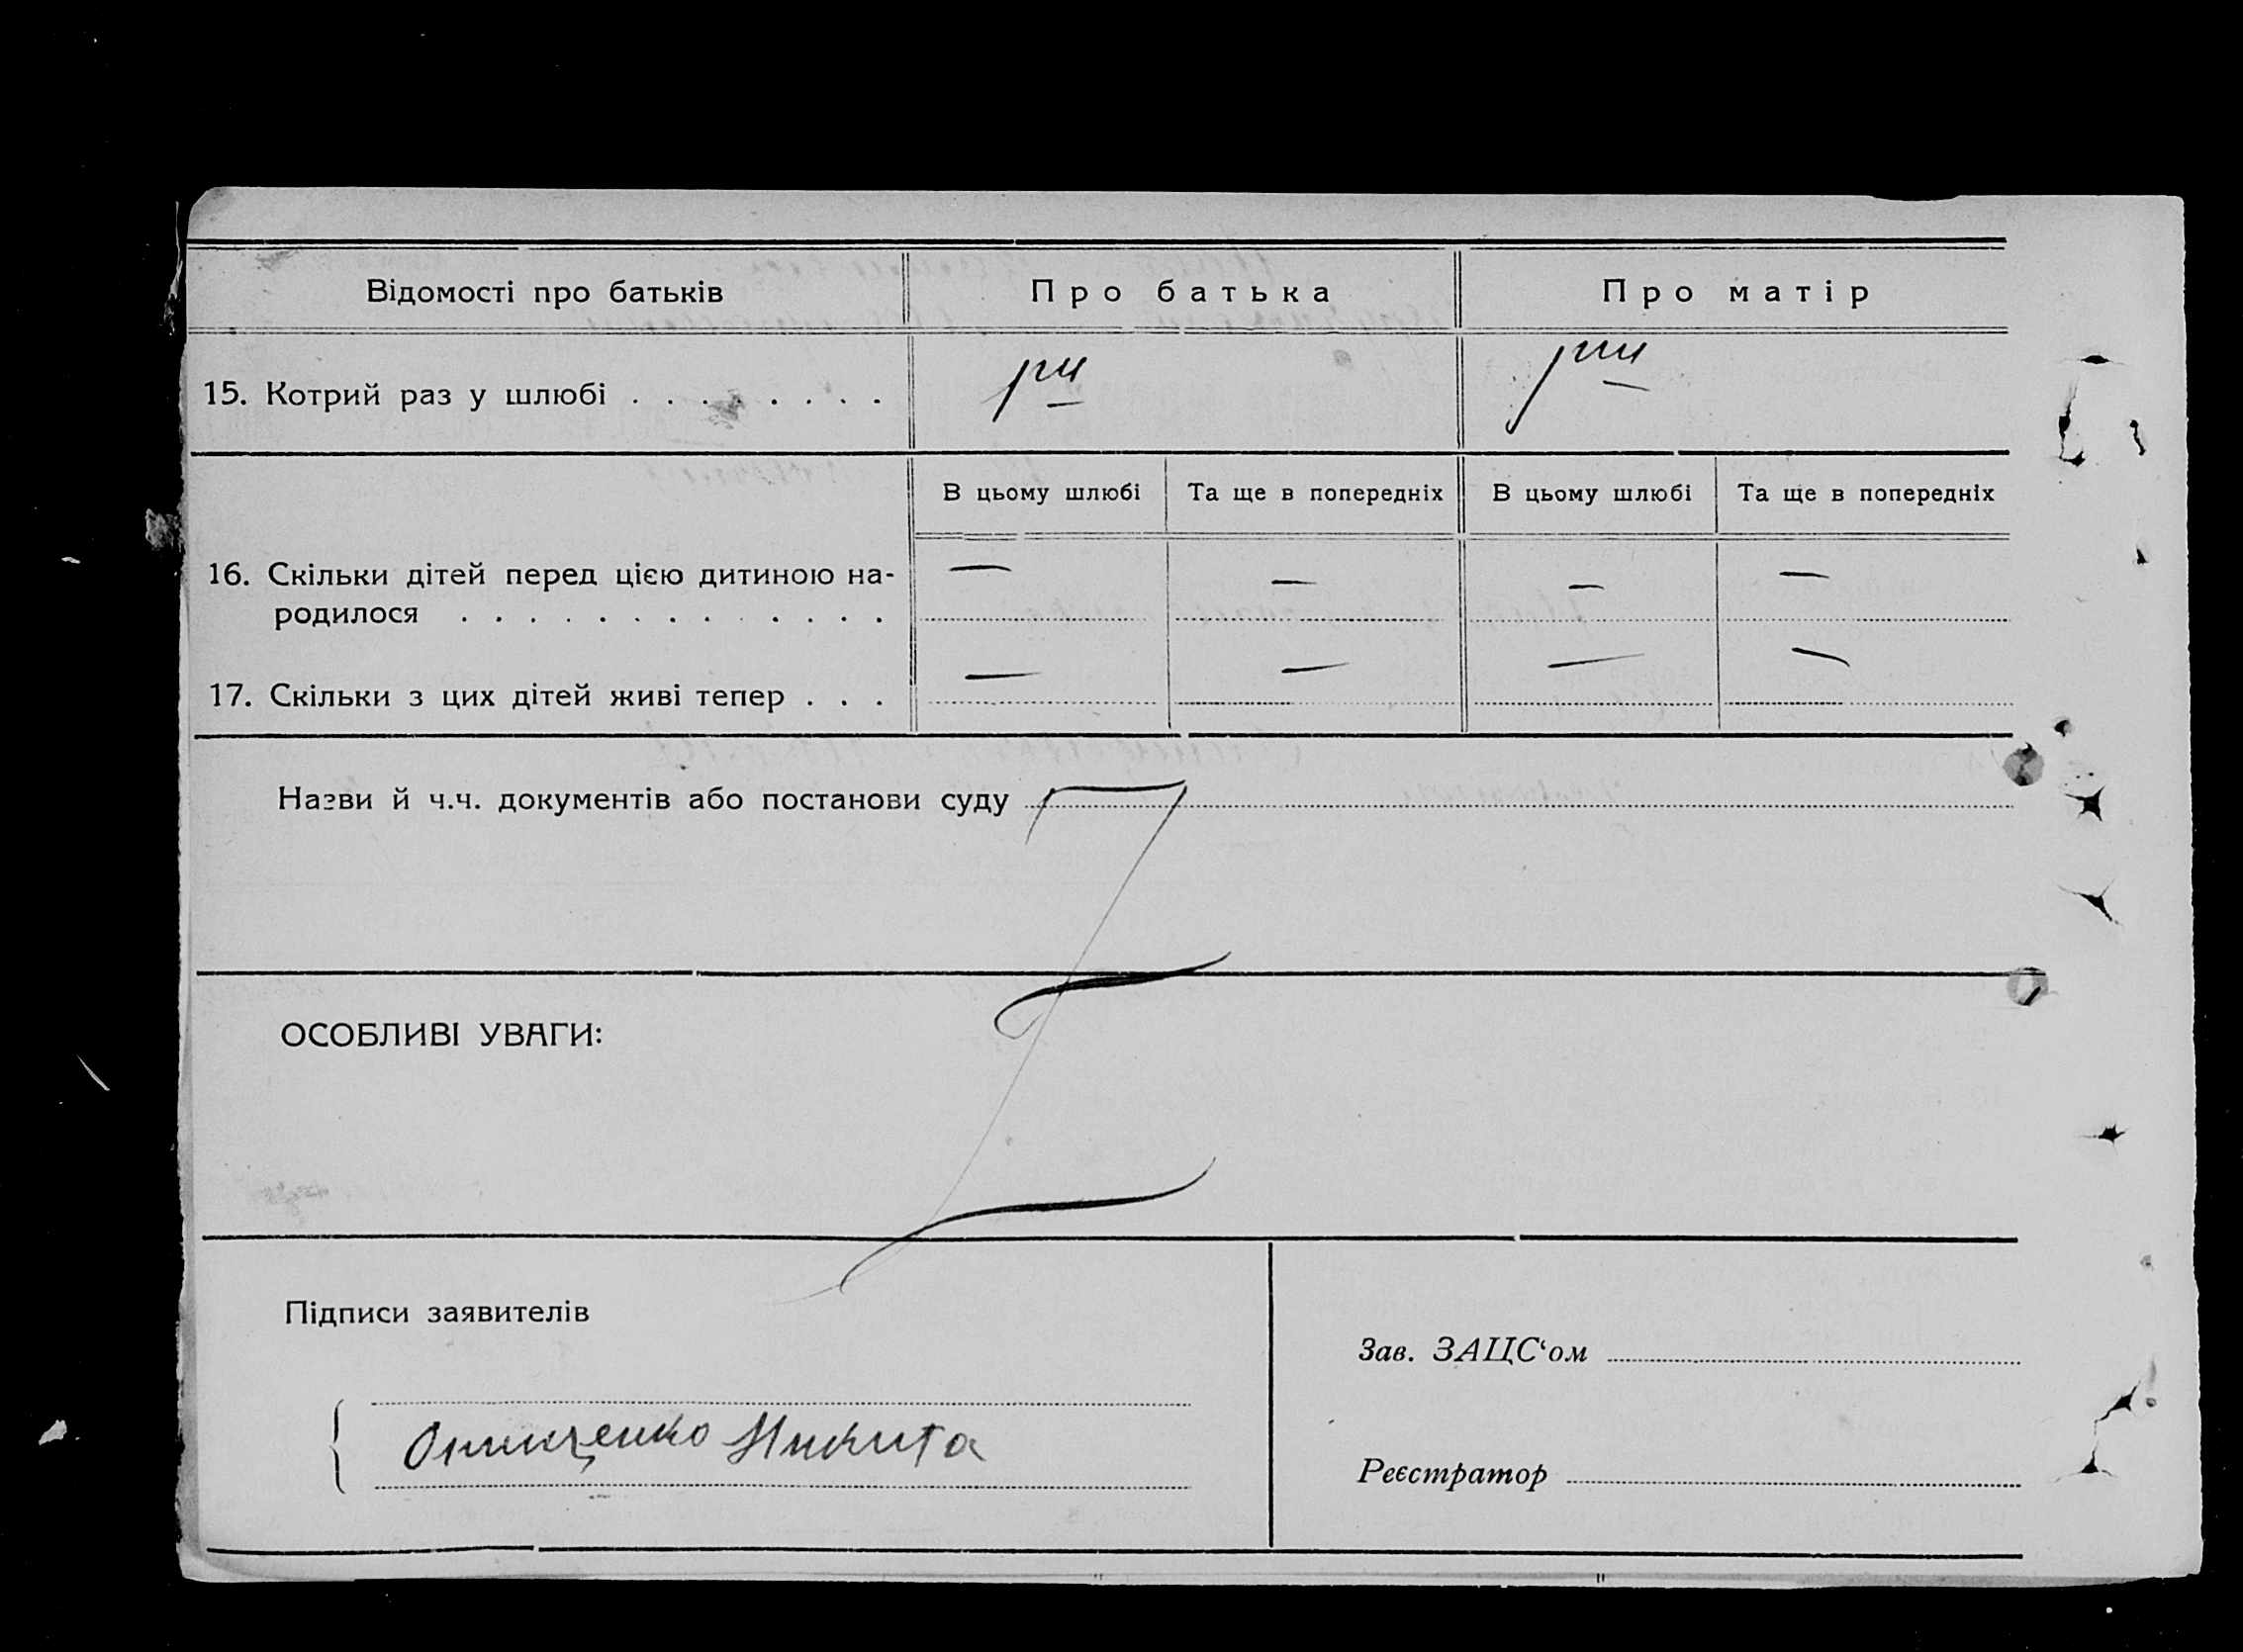 Відомості про батьків Про батька Про матір
15. Котрий раз у шлюбі . . . . . . . .
В цьому шлюбі Та ще в попередніх В цьому шлюбі Та ще в попередніх
16. Скільки дітей перед цією дитиною на-
— — — —
родилося . . . . . . . . . . . . .
17. Скільки з цих дітей живі тепер . . .
— — — —
Назви й ч.ч. документів або постанови суду
ОСОБЛИВІ УВАГИ:
Підписи заявителів
Зав. ЗАЦС‘ом
Онищенко Микита
Реєстратор